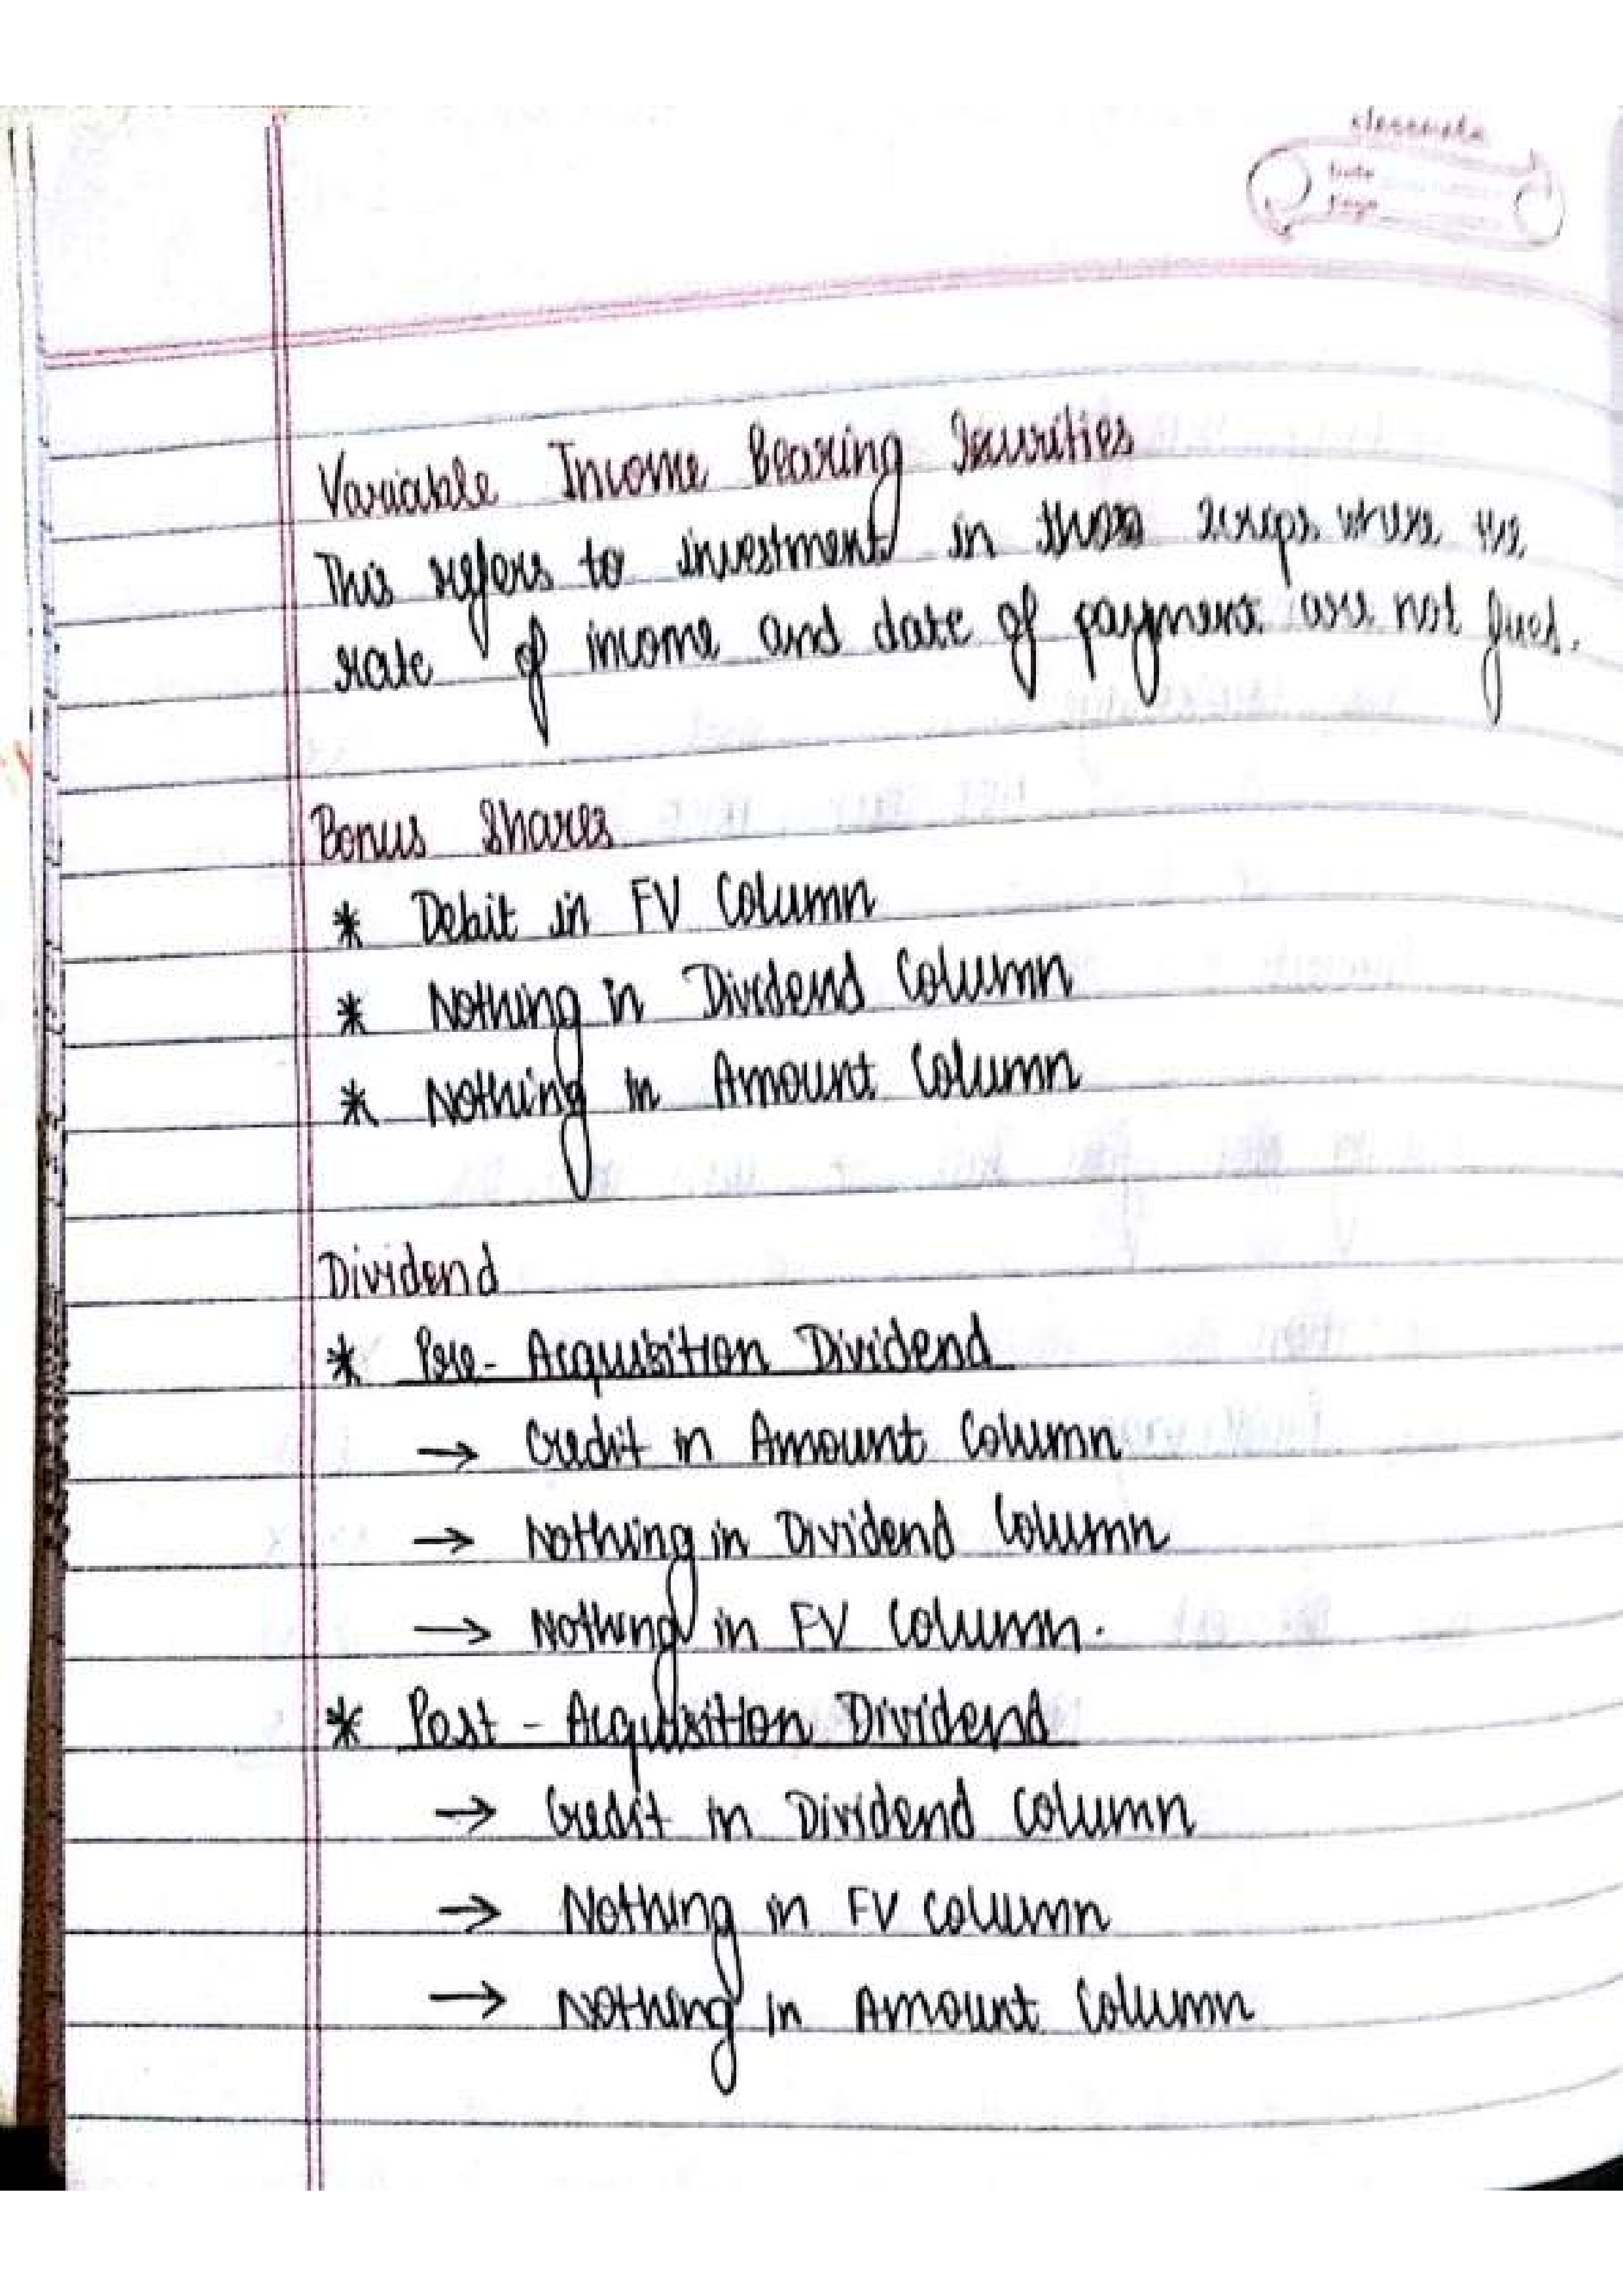 classmate
Date
Page
Variable Income Bearing Securities
This refers to investment in those scrips where the
rate of income and date of payment are not fixed.
Bonus Shares
* Debit in FV Column
* Nothing in Dividend Column
* Nothing in Amount Column
Dividend
* Pre- Acquisition Dividend
→ Credit in Amount Column
→ Nothing in Dividend Column
→ Nothing in FV Column.
* Post - Acquisition Dividend
→ Credit in Dividend Column
→ Nothing in FV column
→ Nothing in Amount Column